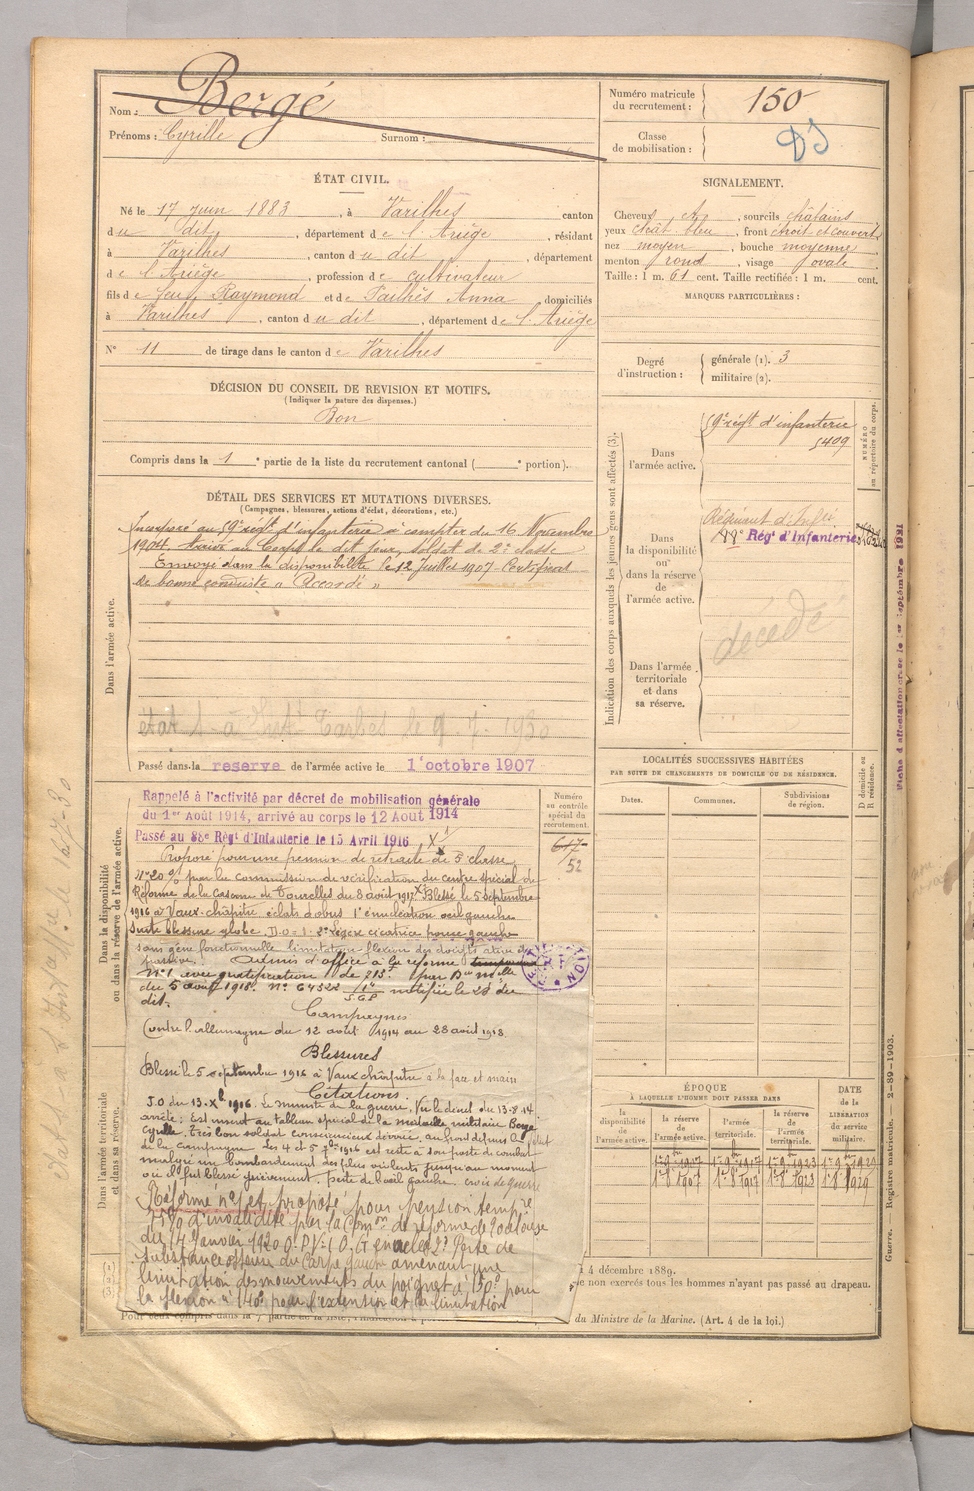 Nom : Bergé
Prénoms : Cyrille Surnom :
Numéro matricule du recrutement : 150
Classe de mobilisation :
ÉTAT CIVIL.
Né le 17 Juin 1883, à Varilhes canton
du dit, département de l'Ariège, résidant
à Varilhes, canton du dit, département
de l'Ariège, profession de cultivateur
fils de feu Raymond et de Pailhès Anna domiciliés
à Varilhes, canton du dit, département de l'Ariège
N° 11 de tirage dans le canton de Varilhes
SIGNALEMENT.
Cheveux ch, sourcils châtains
yeux chât. bleu, front étroit et couvert
nez moyen, bouche moyenne
menton rond, visage ovale
Taille : 1 m. 61 cent. Taille rectifiée : 1 m. cent.
MARQUES PARTICULIÈRES :
Degré d'instruction : générale (1). 3
militaire (2).
DÉCISION DU CONSEIL DE REVISION ET MOTIFS.
(Indiquer la nature des dispenses.)
Bon
Compris dans la 1e partie de la liste du recrutement cantonal ( e portion).
DÉTAIL DES SERVICES ET MUTATIONS DIVERSES.
(Campagnes, blessures, actions d'éclat, décorations, etc.)
Dans l'armée active.
Incorporé au 59e régt d'infanterie à compter du 16 Novembre
1904. Arrivé au Corps le dit jour, soldat de 2e classe
Envoyé dans la disponibilité le 12 Juillet 1907. Certificat
de bonne conduite « Accordé »
Tarbes le 9 7 1930
Passé dans la reserve de l'armée active le 1er octobre 1907
Indication des corps auxquels les jeunes gens sont affectés (3).
NUMÉRO au répertoire du corps.
Dans l'armée active.
59e régt d'infanterie
5409
Dans la disponibilité ou dans la réserve de l'armée active.
Régiment d'Inf
Rég' d'Infanterie
décédé
Dans l'armée territoriale et dans sa réserve.
Fiche d'affectation créée le 1er septembre 1921
LOCALITÉS SUCCESSIVES HABITÉES
PAR SUITE DE CHANGEMENTS DE DOMICILE OU DE RÉSIDENCE.
D domicile ou R résidence.
Dates. Communes. Subdivisions de région.
Dans la disponibilité ou dans la réserve de l'armée active.
Numéro au contrôle spécial du recrutement.
617
52
Rappelé à l'activité par décret de mobilisation générale
du 1er Août 1914, arrivé au corps le 12 Aout 1914
Passé au 88e Régt d'Infanterie le 15 Avril 1916
Proposé pour une pension de retraite de 5 classe
n° 20 % par la commission de vérification du centre spécial de
Réforme de la Caserne de Tourelles du 8 août 1917. Blessé le 5 septembre
1916 à Vaux-chapitre, éclats d'obus 1° énucléation oeil gauche
suite blessure globe. D.O = 1. 2° Légère cicatrice paume gauche
sans gêne fonctionnelle limitation flexion des doigts
passive. Admis d'office à la réforme temporaire
N°1 avec gratification de 713f par
du 5 août 1918. N° 64522 notifiée le 28 du
dit.
Campagnes
Contre l'allemagne du 12 août 1914 au 28 août 1918.
Blessures
Blessé le 5 septembre 1916 à Vaux chapitre à la face et main
Citations.
J.O du 13-Xbre 1916. Le ministre de la guerre. Vu le décret du 13-8-14
arrête : Est inscrit au tableau spécial de la médaille militaire Bergé
Cyrille. Très bon soldat consciencieux dévoué, au front depuis le début
de la campagne. Les 4 et 5 7bre 1916 est resté à son poste de combat
malgré un bombardement des plus violents jusqu'au moment
où il fut blessé grièvement. Perte de l'oeil gauche. croix de guerre
Réformé n°1 et proposé pour pension tempre
75% d'invalidité par la Comon de réforme de Toulouse
du 14 Janvier 1920 O.P.V : 1° O.G énuclée 2° Perte de
substance osseuse du Carpe gauche amenant une
limitation des mouvements du poignet à 150° pour
la flexion à 140° pour l'extension et la limitation
Dans l'armée territoriale et dans sa réserve.
ÉPOQUE
À LAQUELLE L'HOMME DOIT PASSER DANS
la disponibilité de l'armée active.
la réserve de l'armée active.
l'armée territoriale.
la réserve de l'armée territoriale.
DATE de la LIBÉRATION du service militaire.
1-8 1907 1-8 1917 1-8 1923 1-8 1929
4 décembre 1889.
non exercés tous les hommes n'ayant pas passé au drapeau.
du Ministre de la Marine. (Art. 4 de la loi.)
Guerre. — Registre matricule. — 2-89-1903.